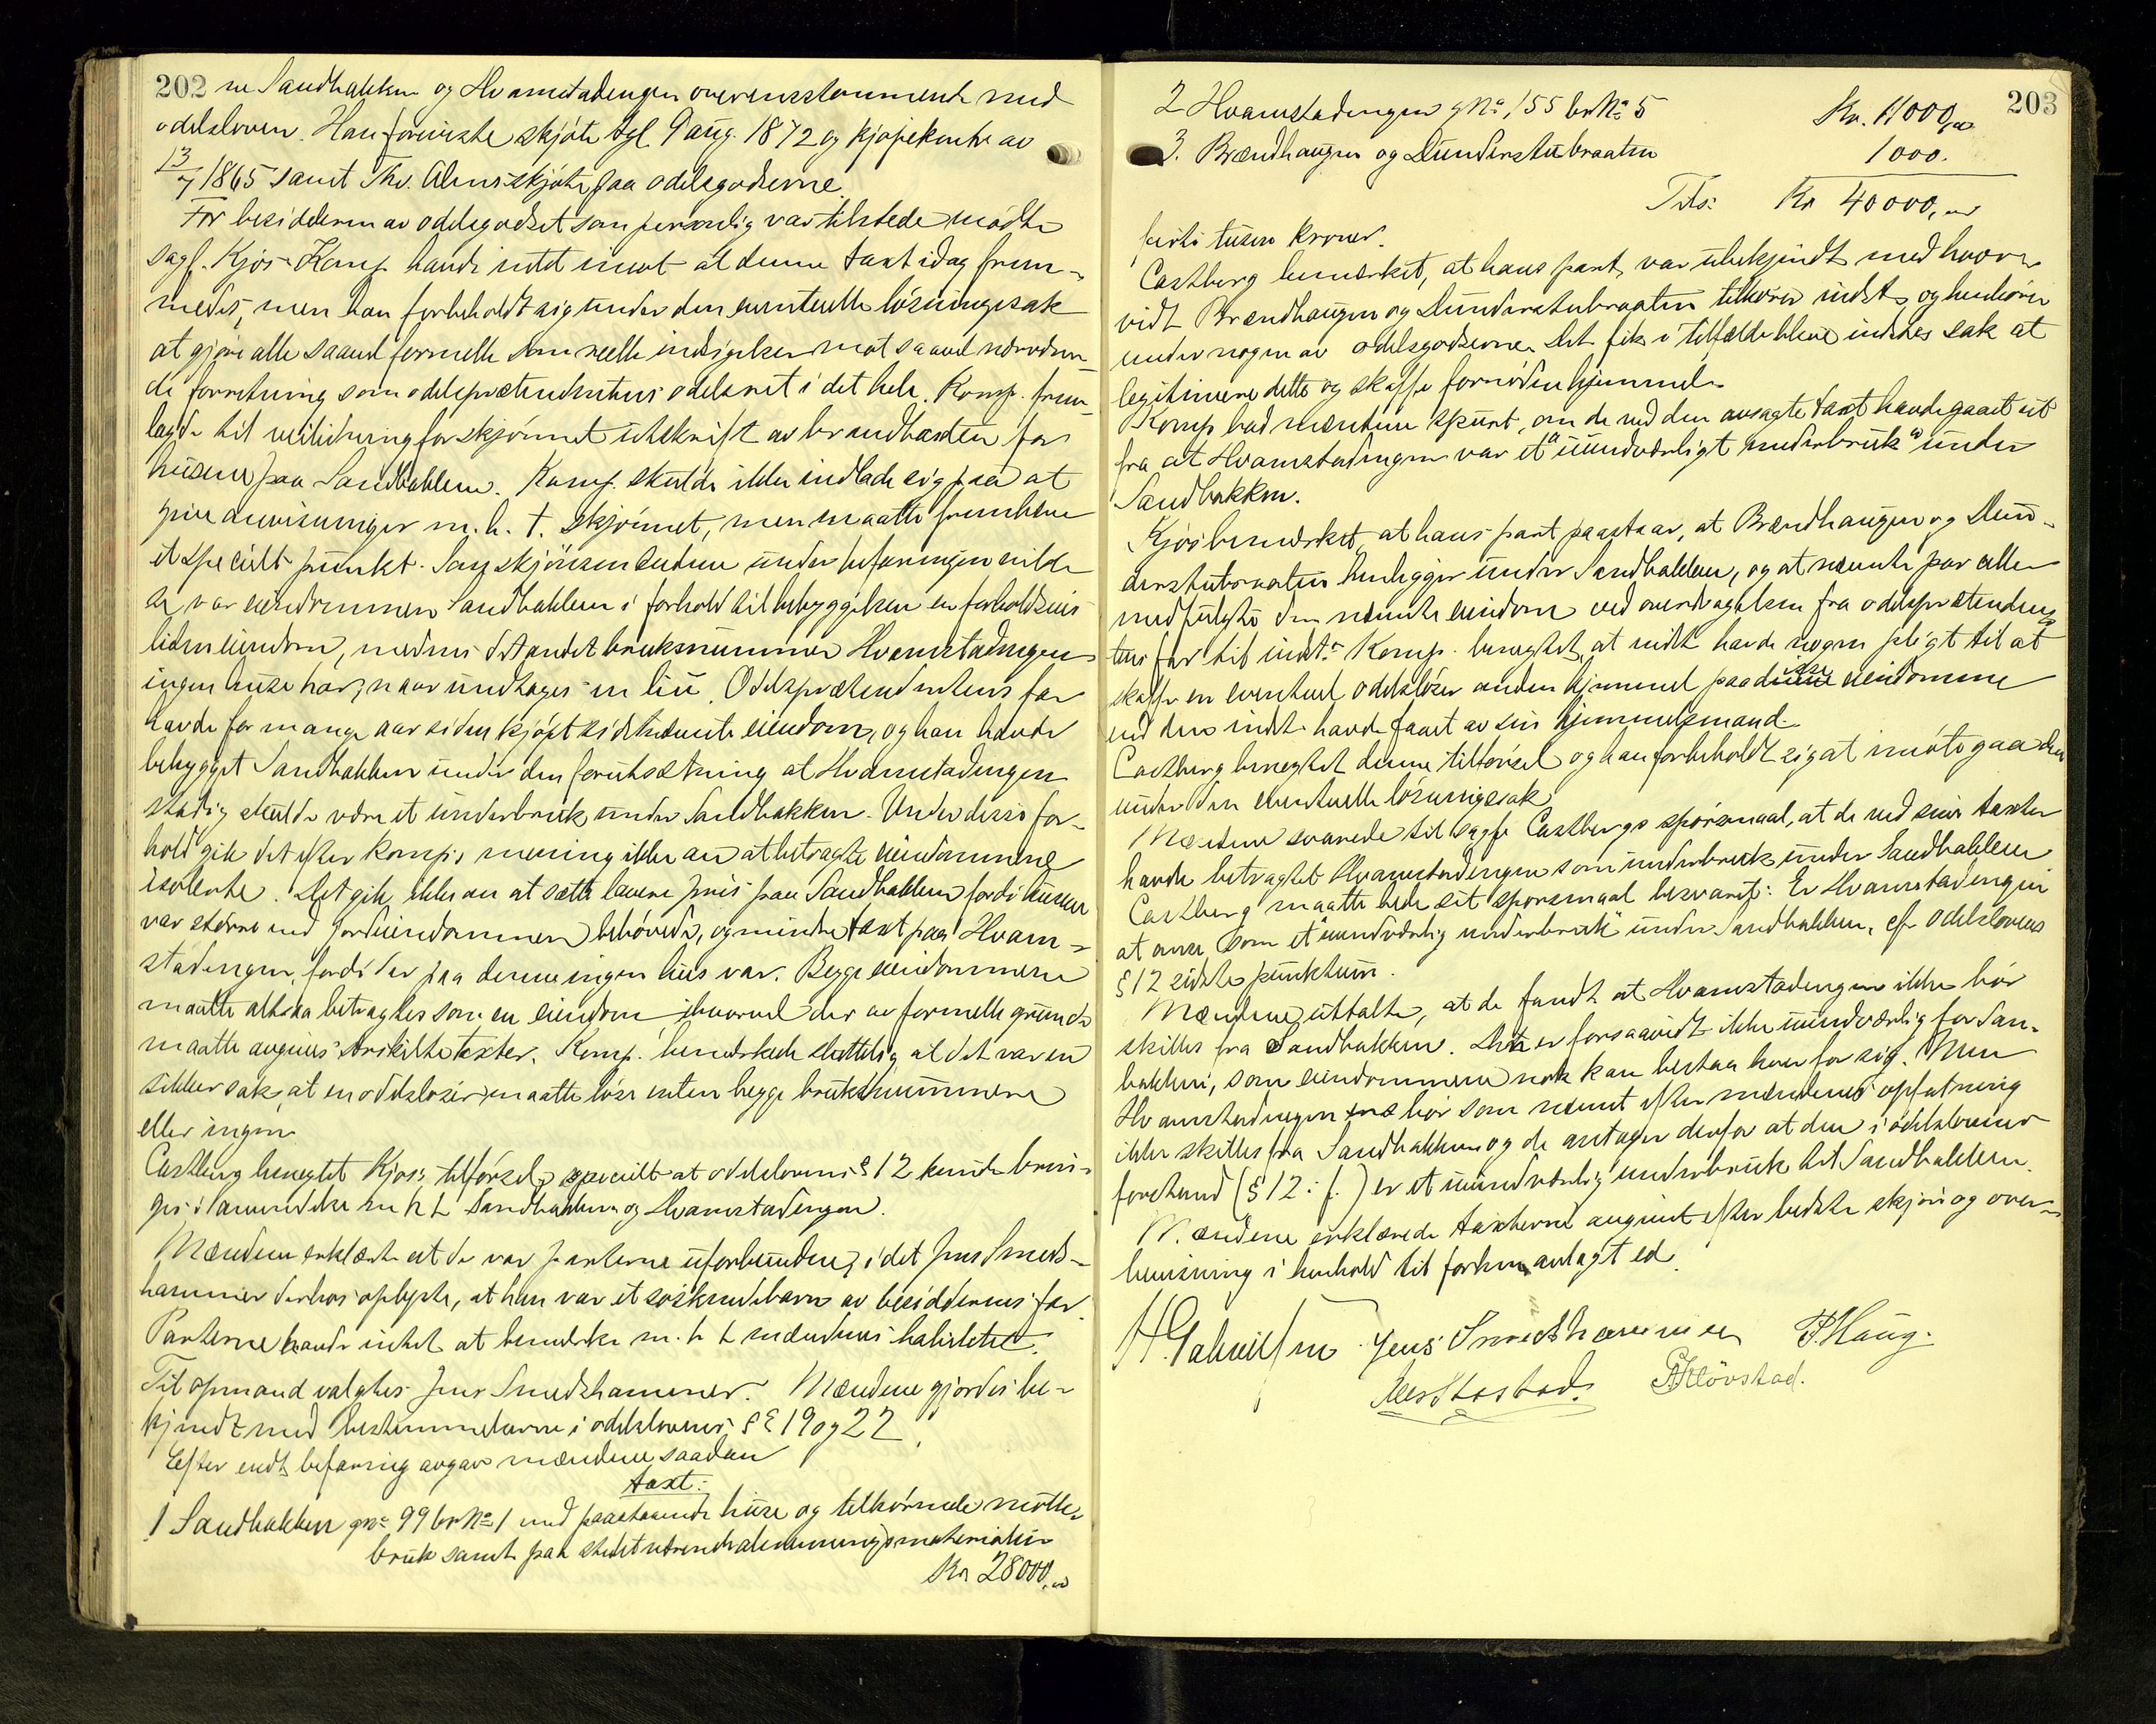 202 ne Sandbakken og Hvamstadengen overensstemmende med
odelsloven. Han foreviste skjøte tgl. 9 aug. 1872 og kjøpekontr av
13/7 1865 samt Th. Alms skjøte paa odelsgodserne.
For besidderen av odelsgodset som personlig var tilstede mødte
sagf. Kjos. Komp. havde intet imot at denne taxt idag frem-
medes, men han forbeholdt sig under den eventuelle løsningssak
at gjøre alle saavel formelle som reelle indsigelser mot saavel nærværen-
de forretning som odelsprætendentens odelsret i det hele. Komp. frem-
lagde til veiledning for skjønnet utskrift av brandtaxten for
husene paa Sandbakken. Komp. skulde ikke indlade sig paa at
give anvisninger m.h.t. skjønnet, men maatte fremheve
et specielt punkt. Som skjønsmændene under befaringen vilde
se var eiendommen Sandbakken i forhold til bebyggelsen en forholdsvis
liden eiendom, medens det andet bruksnummer Hvamstadengen
ingen huse har, naar undtages en liu. Odelsprætendentens far
havde for mange aar siden kjøpt sidstnævnte eiendom, og han havde
bebygget Sandbakken under den forutsætning at Hvamstadengen
stadig skulde være et underbruk under Sandbakken. Under disse for-
hold gik det efter komp.s mening ikke an at betragte eiendommene
isolerte. Det gik ikke an at sætte lavere pris paa Sandbakken fordi husene
var større end jordeiendommen behøvede, og mindre taxt paa Hvam-
stadengen, fordi der paa denne ingen hus var. Begge eiendommene
maatte altsaa betragtes som en eiendom ihvorvel der av formelle grunde
maatte avgives særskilte taxter. Komp. bemerkede sluttelig, at det var en
sikker sak, at en odelsløser maatte løse enten begge bruksnummere
eller ingen.
Castberg benegtet Kjos's tilførsel, specielt at odelslovens § 12 kunde brin-
ges i anvendelse m h t Sandbakken og Hvamstadengen.
Mændene erklærte at de var parterne uforbundne, idet Jens Smeds-
hammer derhos oplyste, at han var et søskendebarn av besidderens far.
Parterne havde intet at bemerke m. h t mændenes habilitet.
Til opmand valgtes Jens Smedshammer. Mændene gjordes be-
kjendt med bestemmelserne i odelslovens §§ 19 og 22.
Efter endt befaring avgav mændene saadan
taxt:
1 Sandbakken gno 99 br No 1 med paastaaende huse og tilhørende mølle-
bruk samt paa stedet værende materialier
Kr 28000,00
203
2 Hvamstadengen g No 155 br No 5 Kr. 11000,00
3. Brændhaugen og Dunderstubraaten 1000.
Tils: Kr 40000,00
firti tusen kroner.
Castberg bemerket, at hans part var ubekjendt med hvor-
vidt Brændhaugen og Dunderstubraaten tilhører indst. og henhører
under nogen av odelsgodserne. Det fik i tilfælde blive indstes sak at
legitimere dette og skaffe fornøden hjemmel.
Komp bad mændene spurt, om de ved den avsagte taxt havde gaaet ut
fra at Hvamstadengen var et "uundværligt underbruk" under
Sandbakken.
Kjos bemerket, at hans part paastaar, at Brændhaugen og Dun-
derstubraaten henligger under Sandbakken, og at nævnte parceller
medfulgte den nævnte eiendom ved overdragelsen fra odelsprætenden-
tens far til indst. Komp. benegtet, at indst havde nogen pligt til at
skaffe en eventuel odelsløser anden hjemmel paa disse eiendomme
end den indst. havde faaet av sin hjemmelsmand.
Castberg benegtet denne tilførsel og han forbeholdt sig at imøtegaa den
under den eventuelle løsningssak.
Mændene svarede til sagfø Castbergs spørsmaal, at de ved sine taxter
havde betragtet Hvamstadengen som underbruk under Sandbakken
Castberg maatte bede sit spørsmaal besvaret: Er Hvamstadengen
at anse som et "uundværlig underbruk" under Sandbakken, cfr odelslovens
§ 12 sidste punktum.
Mændene uttalte, at de fandt at Hvamstadengen ikke bør
skilles fra Sandbakken. Den er forsaavidt ikke uundværlig for San-
bakken, som eiendommene nok kan bestaa hver for sig. Men
Hvamstadengen bør som nævnt efter mændenes opfatning
ikke skilles fra Sandbakken og de antager derfor at den i odelslovens
forstand (§ 12 i. f.) er et uundværlig underbruk til Sandbakken.
Mændene erklærede taxterne avgivet efter bedste skjøn og over-
bevisning i henhold til forhen avlagt ed.
H. Gabrielsen Jens Smedshammer P. Haug.
Stastad. A. Kløvstad.